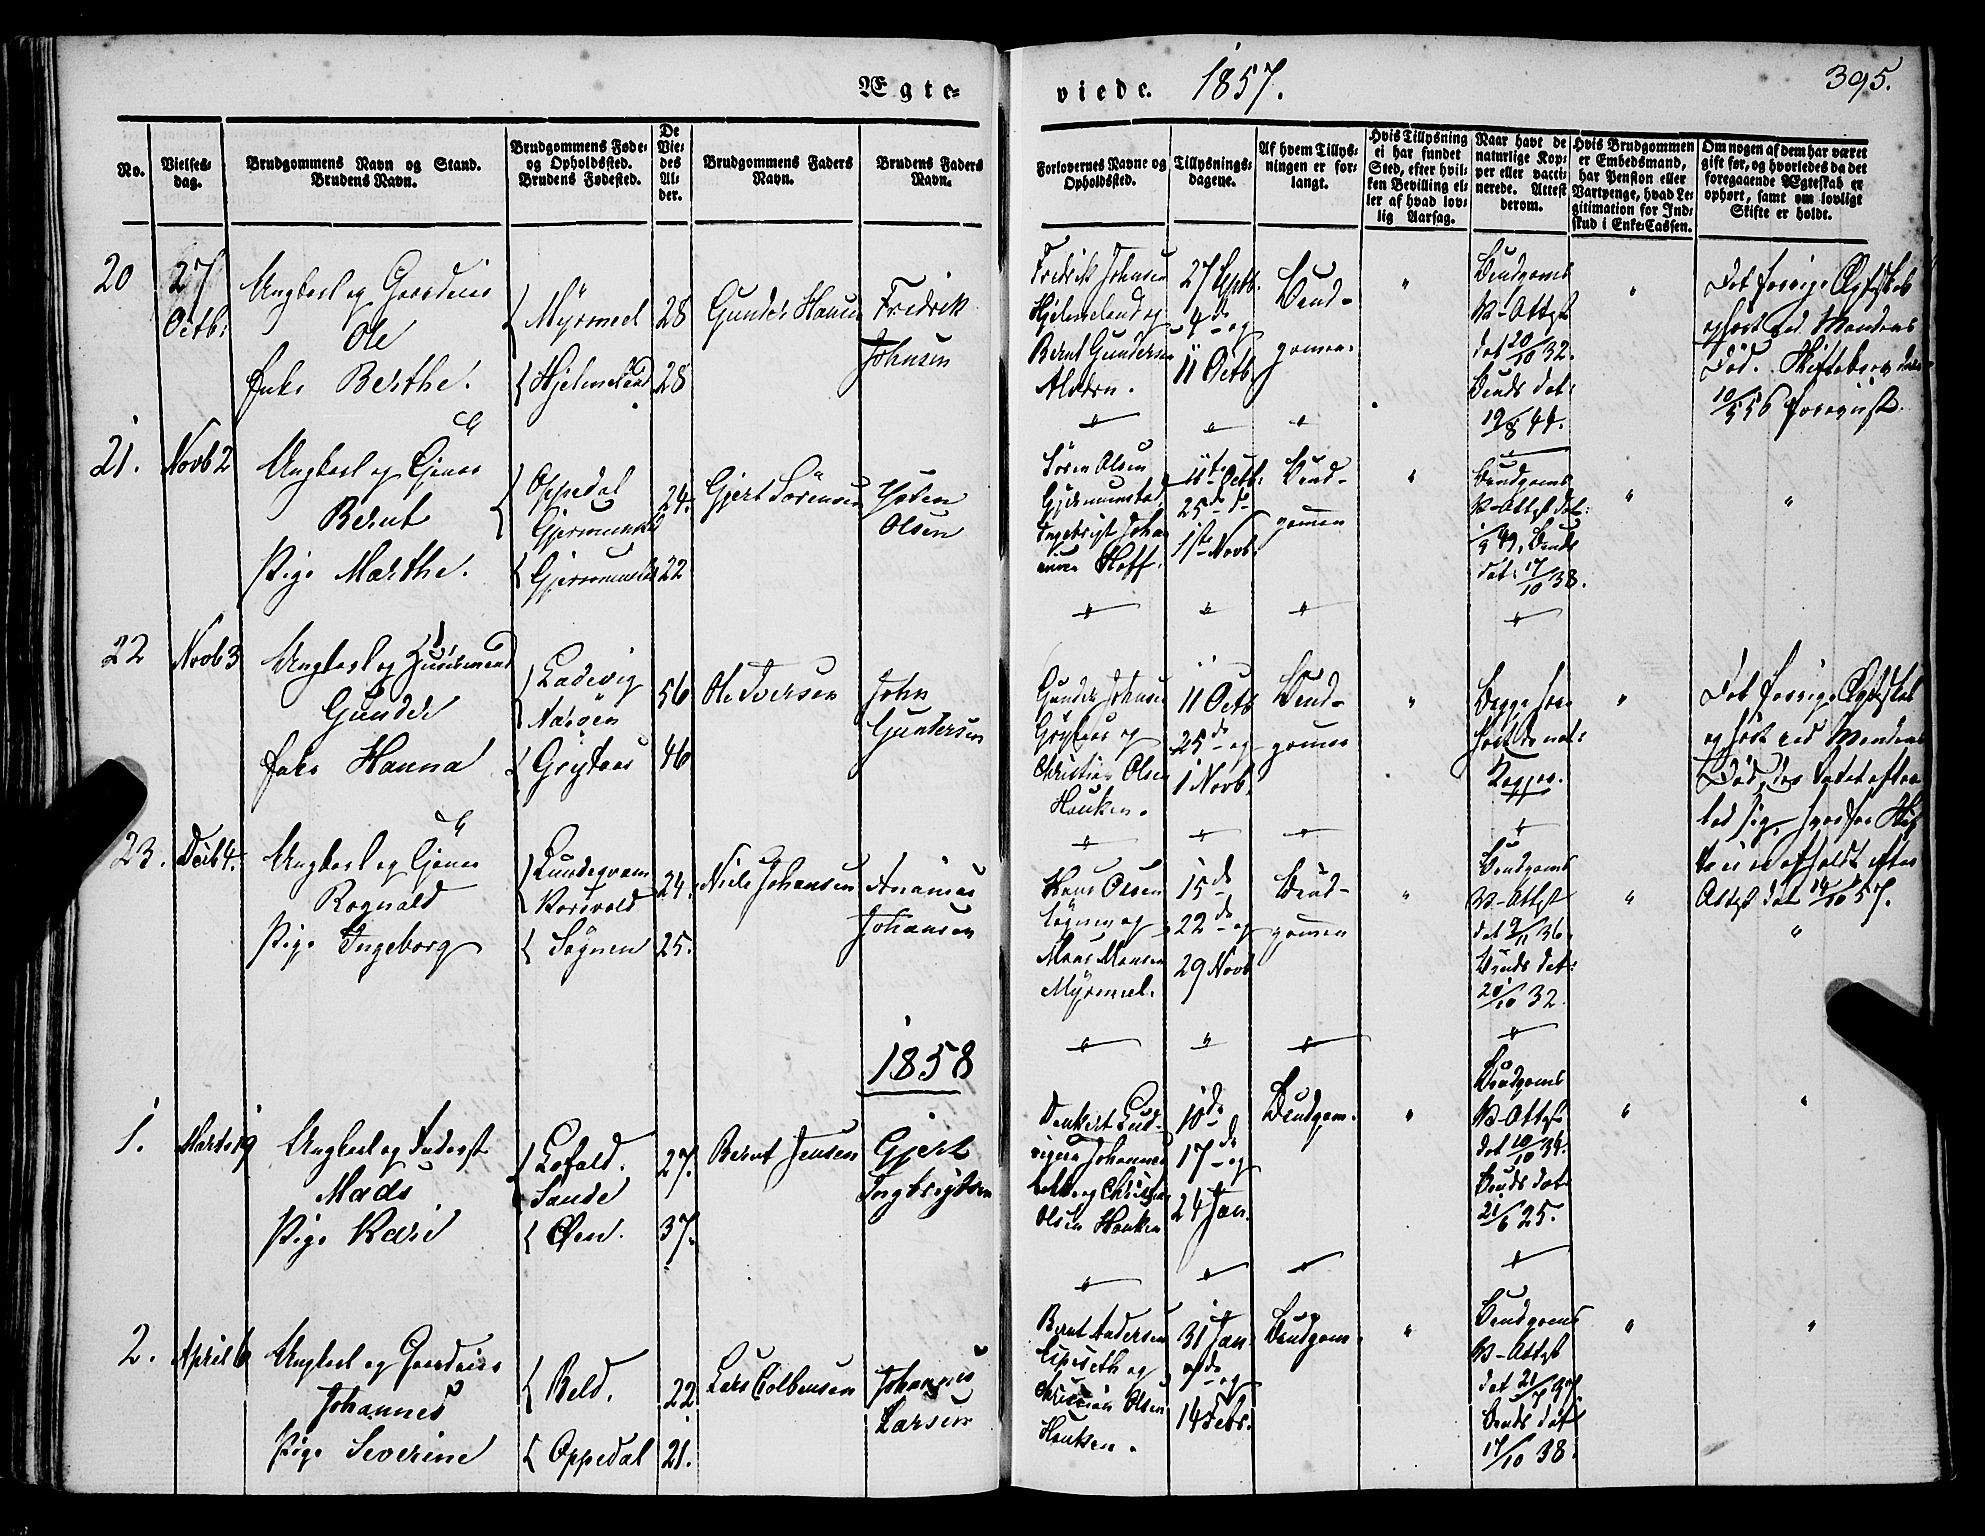 Ægte-
viede. 1857.
395.
No.
Vielses-
dag.
Brudgommens Navn og Stand.
Brudens Navn.
Brudgommens Føde-
og Opholdssted.
Brudens Fødested.
De
Vie-
des
Al-
der.
Brudgommens Faders
Navn.
Brudens Faders
Navn.
Forlovernes Navne og
Opholdssted.
Tillysnings-
dagene.
Af hvem Tillys-
ningen er for-
langt.
Hvis Tillysning
ei har fundet
Sted, efter hvil-
ken Bevilling el-
ler af hvad lov-
lig Aarsag.
Naar havt de
naturlige Kop-
per eller vacci-
nerede. Attest
derom.
Hvis Brudgommen
er Embedsmand,
har Pension eller
Vartpenge, hvad Le-
gitimation for Ind-
skud i Enke-Cassen.
Om nogen af dem har været
gift før, og hvorledes da det
foregaaende Ægteskab er
ophørt, samt om lovligt
Skifte er holdt.
20
27
Octb:
Ungkarl og Gaardeier
Ole
Enke Berthe.
Myrmel
Hjelmeland
28
28
Gunder Hansen
Fredrik
Johnsen
Fredrik Johnsen
Hjelmeland og
Bernt Gundersen
27 Septb.
4de og
11 Octb.
Brud-
gomen.
"
Brudgoms
V-Attest
dat 20/10 32.
Bruds dat:
19/8 44.
"
Det forrige Ægteskab
ophört ved Mandens
Död. Skiftebrev dat
10/5 56 forevist.
21.
Novb 2
Ungkarl og
Bernt
Pige Marthe.
Oppedal
Gjermundstad
Gjermundstad
24.
22
Gjert Sörensen
Olsen
Sören Olsen
Gjermunstad
Ingebrigt Johan
Hoff.
11te Octb:
25de do
1ste Novb:
Brud-
gomen
"
Brudgoms
V-Attest dat:
Bruds
dat: 17/10 38.
"
"
22
Novb 3
Ungkarl og Huusmand
Gunder
Enke Hanna
Ladevig
Grytens
56
46
Ole Iversen
John
Gundersen
Gunder Johnsen
og
Christian Olsen
Hauken.
11 Octb
25de og
1 Novb.
Brud-
gomen
"
Begge har
havt de nat:
Kopper.
"
Det forrige Ægteskab
ophört ved Mandens
Död,
hvorfor
Attest dat 14/10 57.
23.
Decb 4.
Ungkarl og
Rognald
Pige Ingeborg
Korsvold
Sögnen
24.
25.
Niels Johansen
Ananias
Johansen
Hans Olsen
Sögnen og
Mons Monsen
Myrmel.
15de
22de og
29 Novb
Brud-
gomen
"
Brudgoms
V-Attest
dat 9/11 36.
Bruds dat:
20/10 32
"
"
1858
1.
Marts 19
Ungkarl og Inderst
Mads
Pige Kari
Lefald.
Sande
Øen.
27.
37.
Bernt Jensen
Gjert
Ingbrigtsen
Johannes
Christian
Olsen Hauken
10de
17de og
24 Jan.
Brudgom.
"
Brudgoms
V-Attest
dat 10/10 34.
Bruds dat
21/6 25.
"
"
2.
April 6
Ungkarl og Gaardeier
Johannes
Pige Severine
Beld.
Oppedal
22
21.
Lars Colbensen
Johannes
Larsen
Bernt Andersen
og
Christian Olsen
Hauken.
31 Jan.
7de og
14 Febr.
Brudgom.
"
Brudgoms
V-Attest
dat 21/7 37
Bruds dat
17/10 38.
"
"